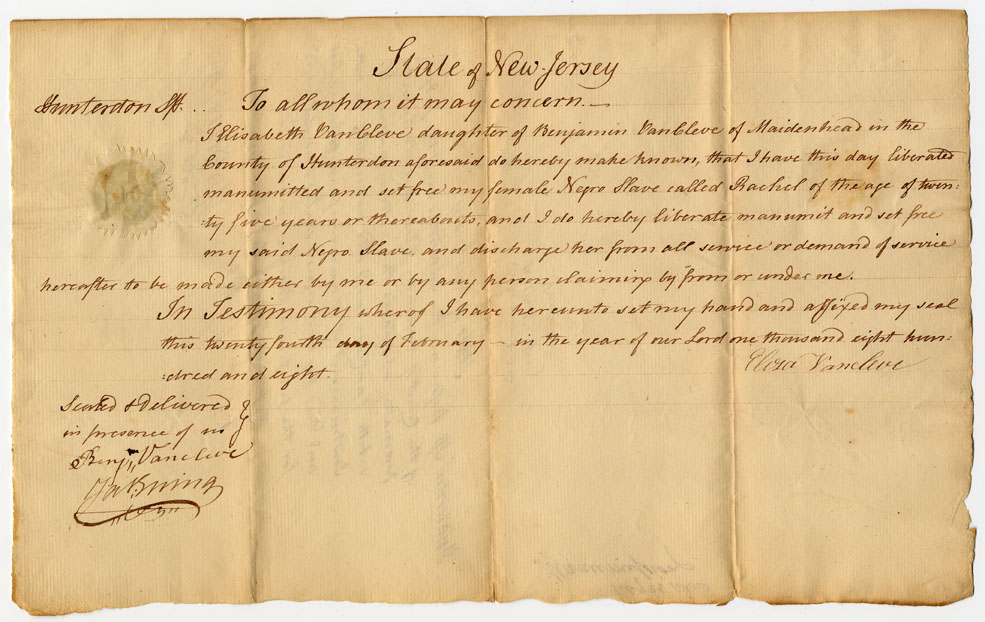 State of New-Jersey
Hunterdon Ss. .. To all whom it may concern.—
I Elisabeth VanCleve daughter of Benjamin VanCleve of Maidenhead in the
County of Hunterdon aforesaid do hereby make known, that I have this day liberated
manumitted and set free my female Negro Slave called Rachel of the age of twen:
ty five years or thereabouts, and I do hereby liberate manumit and set free
my said Negro Slave, and discharge her from all service or demand of service
hereafter to be made either by me or by any person claiming by from or under me.
In Testimony wherof I have hereunto set my hand and affixed my seal
this twenty fourth day of February — in the year of our Lord one thousand eight hun:
:dred and eight.
Eliza Vancleve
Sealed & Delivered
in presence of us
Benj. Vancleve